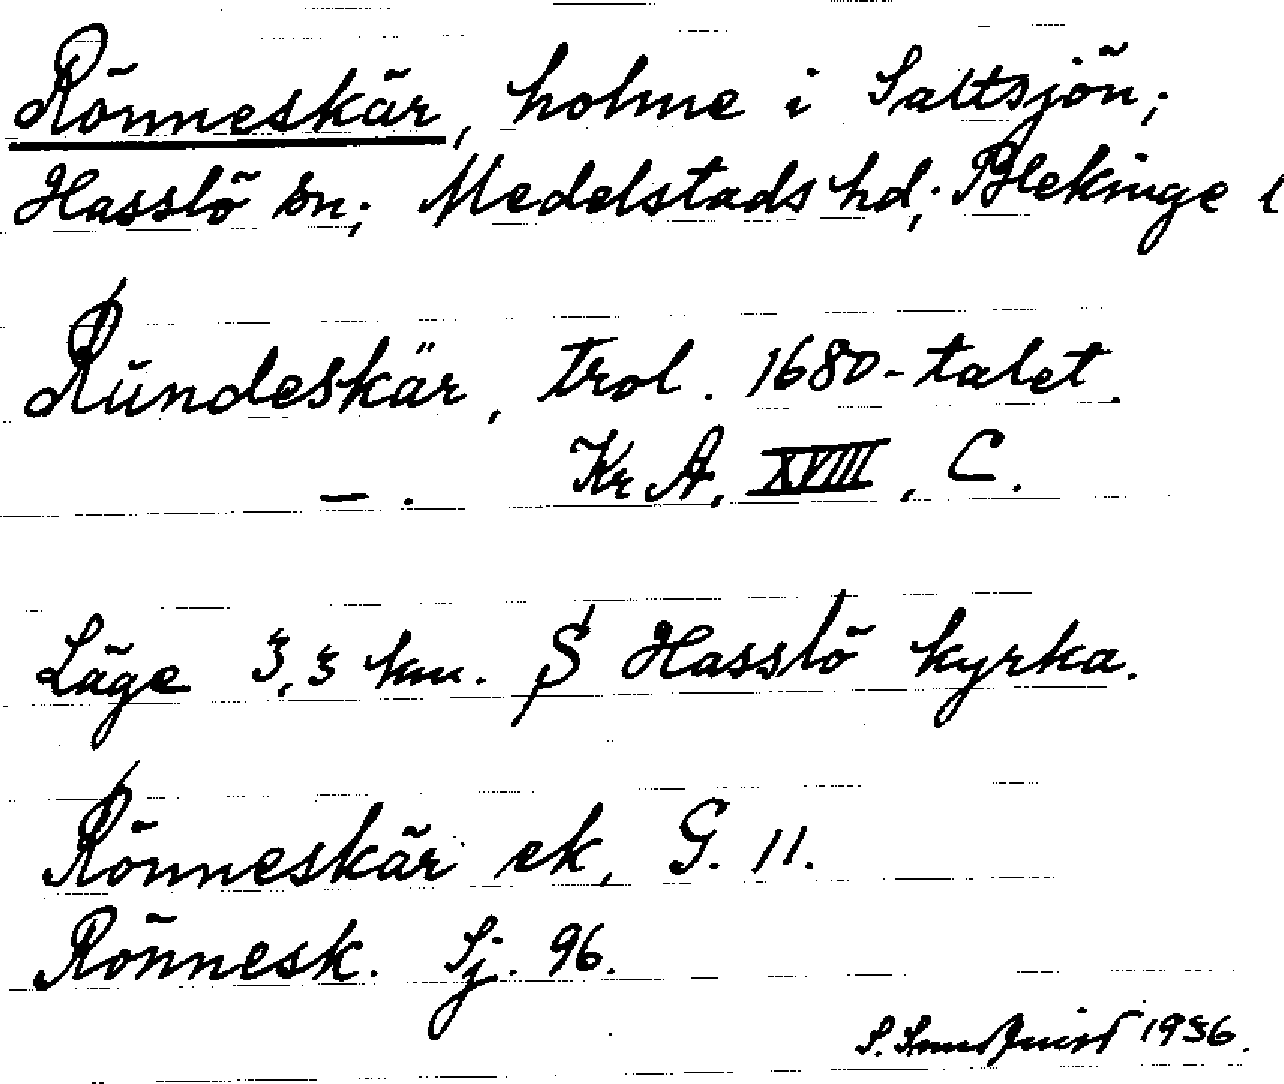 Rönneskär, holme i Saltsjön;
Hasslö sn; Medelstads hd; Blekinge l
Ründeskär, trol. 1680-talet.
—. KrA, XVIII, C.
Läge 3,3 km. S Hasslö kyrka.
Rönneskär ek, G. 11.
Rönnesk. Sj. 96.
S. 1936.